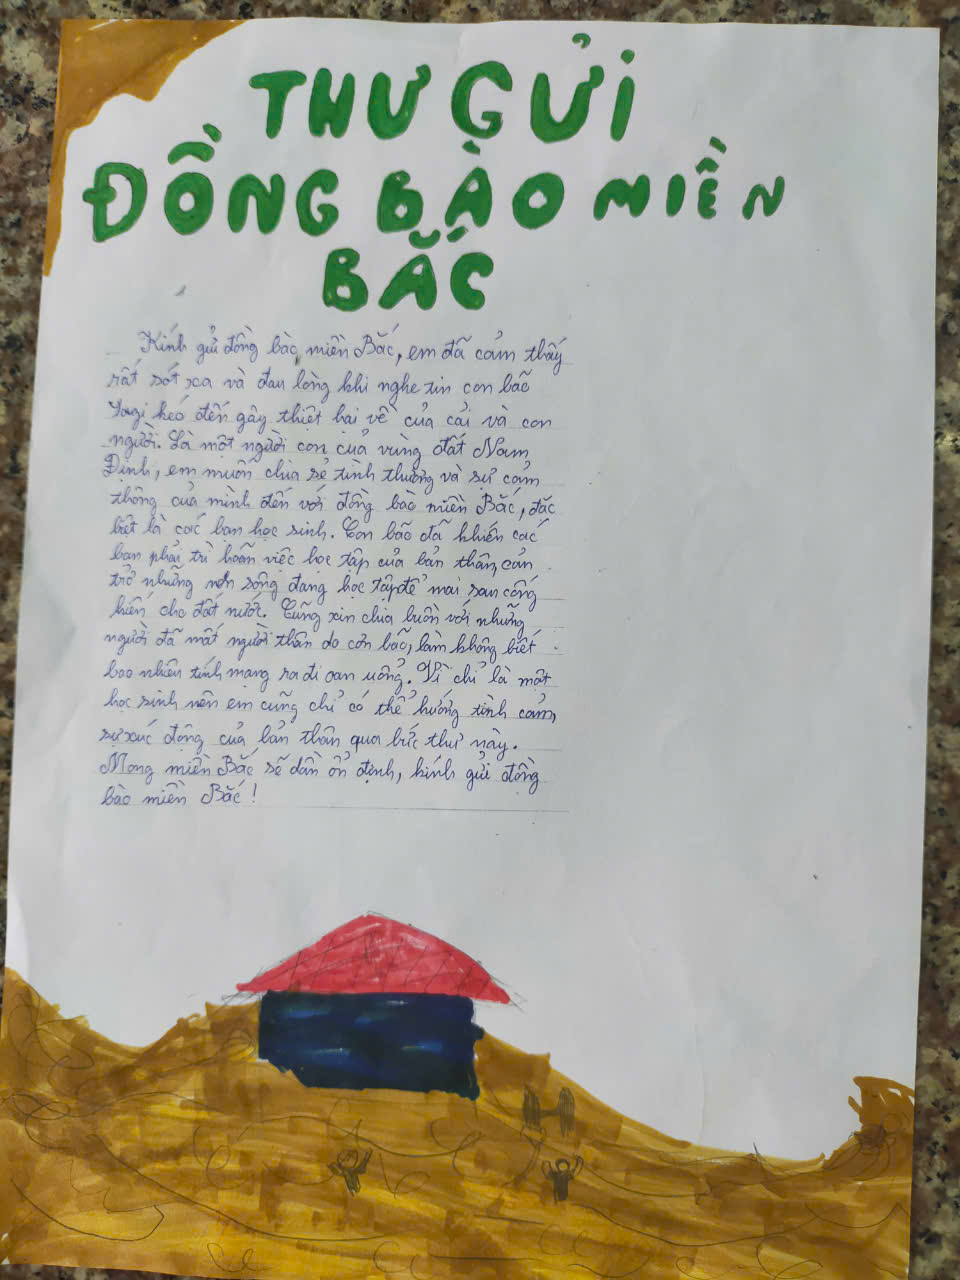 THƯ GỬI
ĐỒNG BÀO MIỀN
BẮC
Kính gửi đồng bào miền Bắc, em đã cảm thấy
rất sót xa và đau lòng khi nghe tin cơn bão
Yagi kéo đến gây thiệt hại về của cải và con
người. Là một người con của vùng đất Nam
Định, em muốn chia sẻ tình thương và sự cảm
thông của mình đến với đồng bào miền Bắc, đặc
biệt là các bạn học sinh. Cơn bão đã khiến các
bạn phải trì hoãn việc học tập của bản thân, cản
trở những mầm sống đang học tập để mai sau cống
hiến cho đất nước. Cũng xin chia buồn với những
người đã mất người thân do cơn bão, làm không biết
bao nhiêu tính mạng ra đi oan uổng. Vì chỉ là một
học sinh nên em cũng chỉ có thể hướng tình cảm,
sự xúc động của bản thân qua bức thư này.
Mong miền Bắc sẽ dần ổn định, kính gửi đồng
bào miền Bắc!